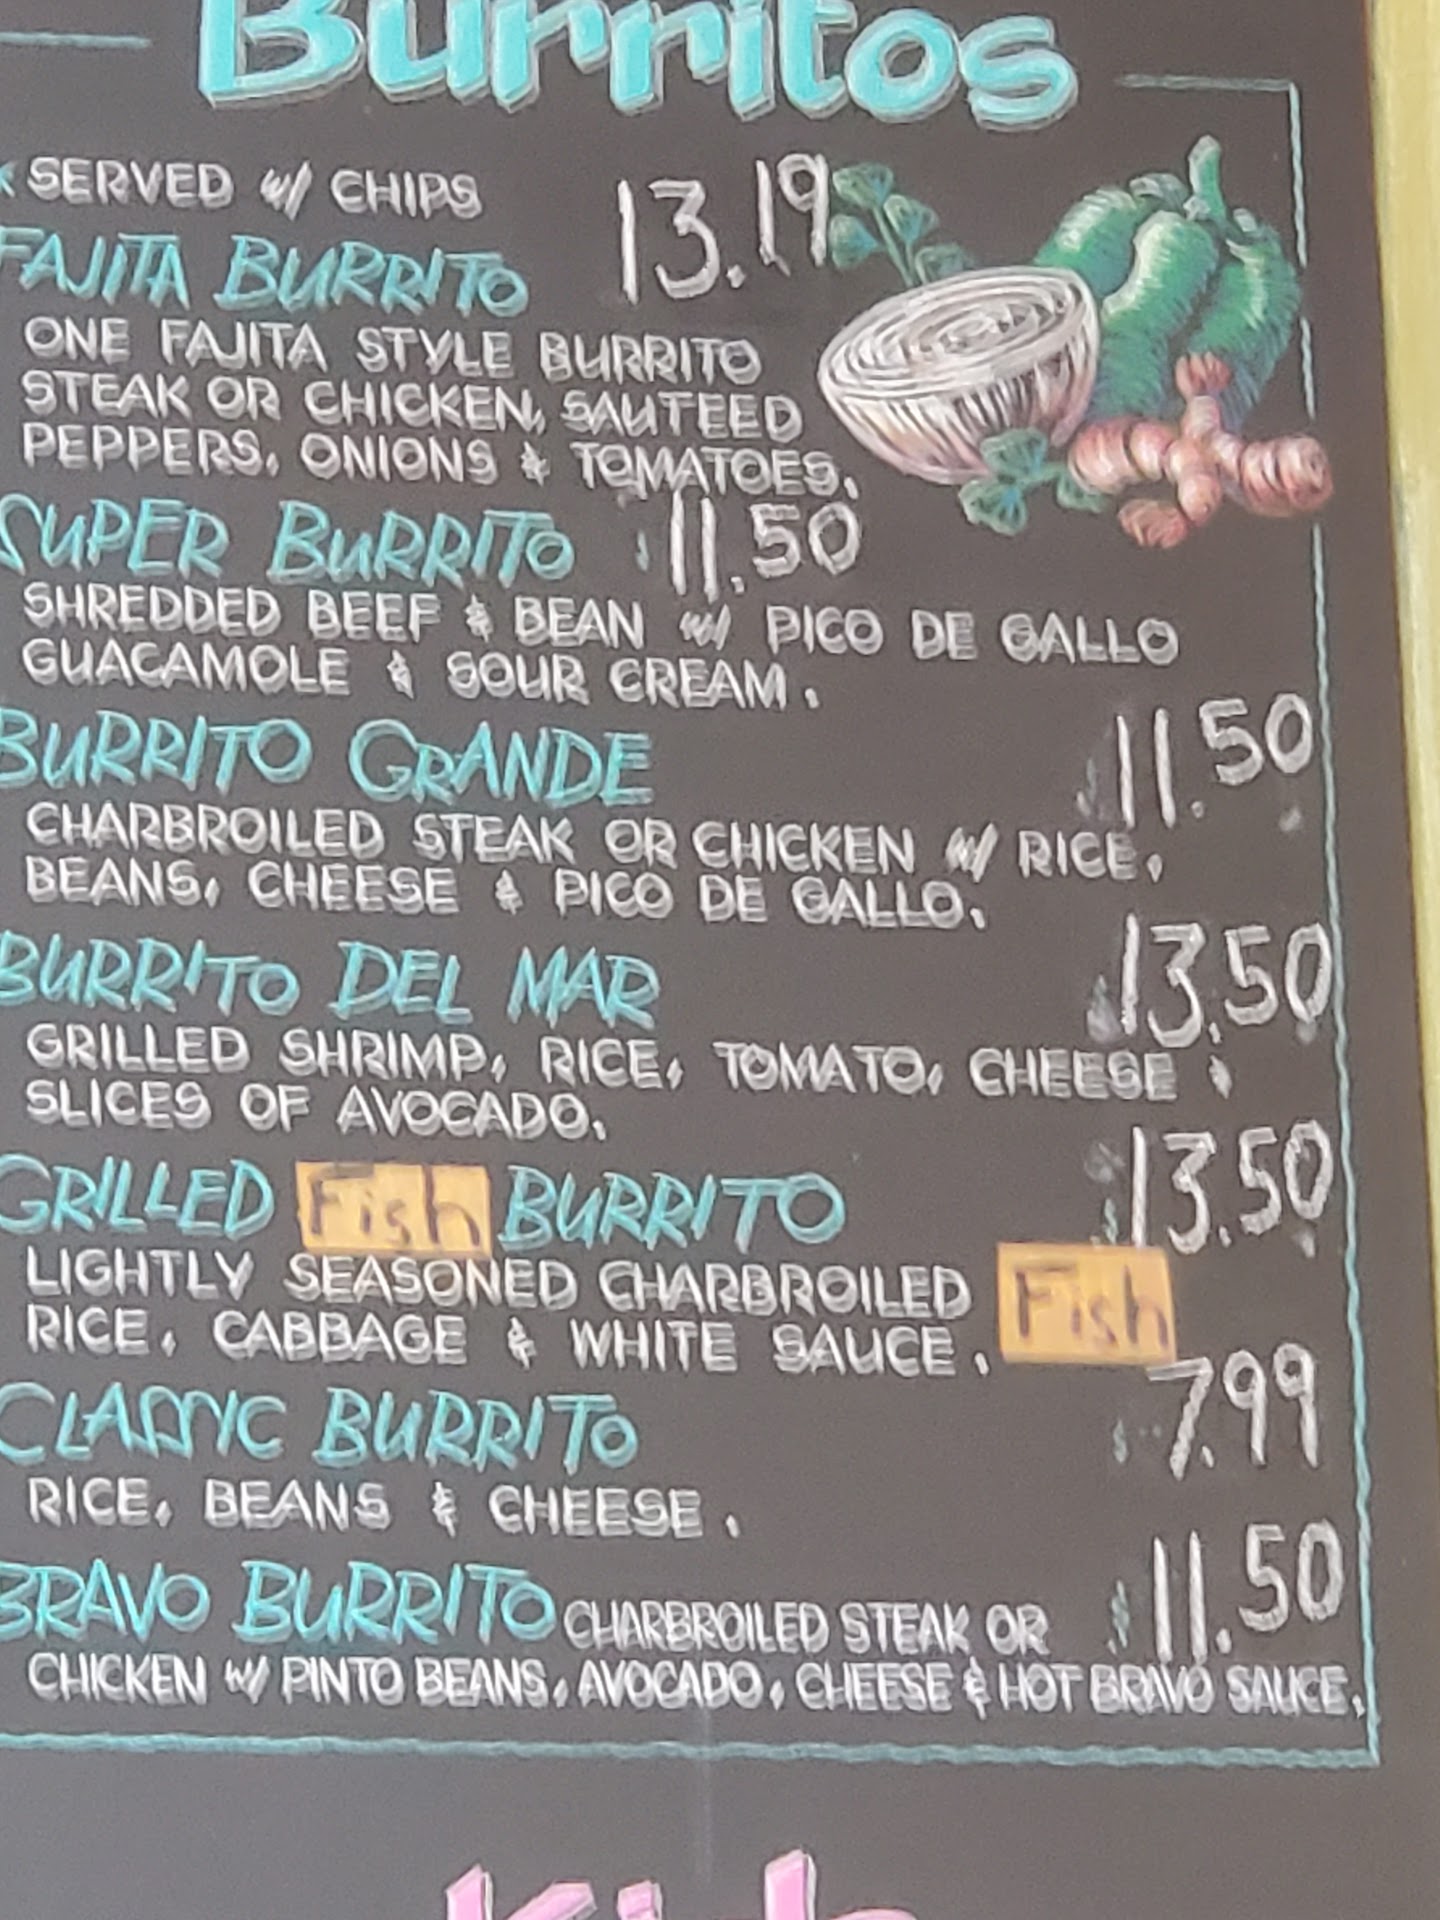 Burritos
* SERVED w/ CHIPS
FAJITA BURRITO 13.19
ONE FAJITA STYLE BURRITO
STEAK OR CHICKEN, SAUTEED
PEPPERS, ONIONS & TOMATOES.
SUPER BURRITO 11.50
SHREDDED BEEF & BEAN w/ PICO DE GALLO
GUACAMOLE & SOUR CREAM.
BURRITO GRANDE 11.50
CHARBROILED STEAK OR CHICKEN w/ RICE,
BEANS, CHEESE & PICO DE GALLO.
BURRITO DEL MAR 13.50
GRILLED SHRIMP, RICE, TOMATO, CHEESE &
SLICES OF AVOCADO.
GRILLED Fish BURRITO 13.50
LIGHTLY SEASONED CHARBROILED Fish
RICE, CABBAGE & WHITE SAUCE.
CLASSIC BURRITO $ 7.99
RICE, BEANS & CHEESE.
BRAVO BURRITO CHARBROILED STEAK OR $ 11.50
CHICKEN w/ PINTO BEANS, AVOCADO, CHEESE & HOT BRAVO SAUCE.